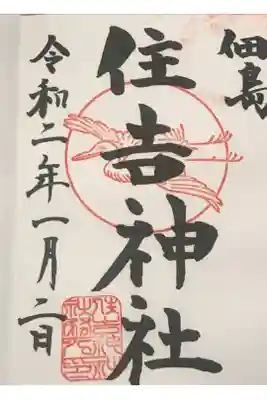 佃島
住吉神社
令和二年一月二日